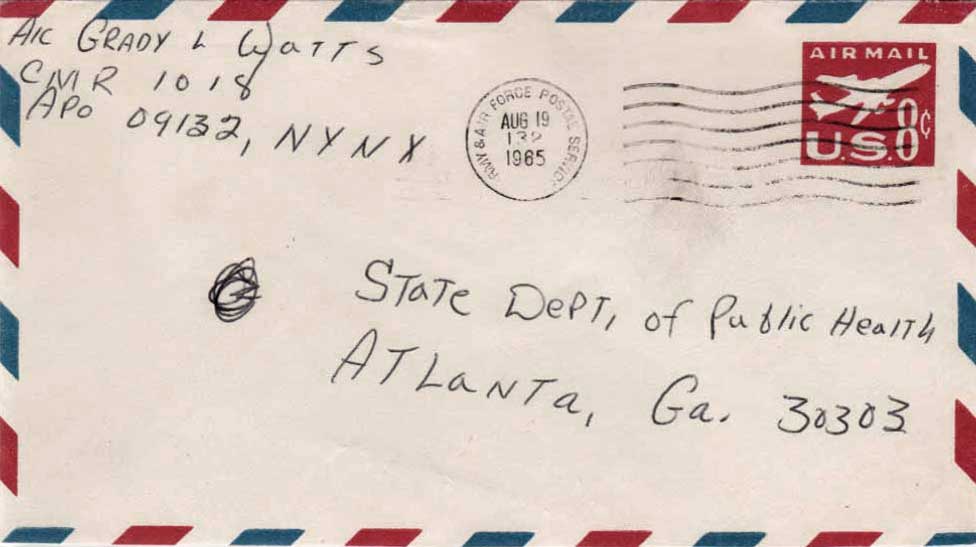 A1C GRADY L WATTS
CMR 1018
APO 09132, NY NY
ARMY & AIR FORCE POSTAL SERVICE
AUG 19
132
1965
AIR MAIL
8¢
U.S.
STATE DEPT, of Public Health
ATLANTA, Ga. 30303